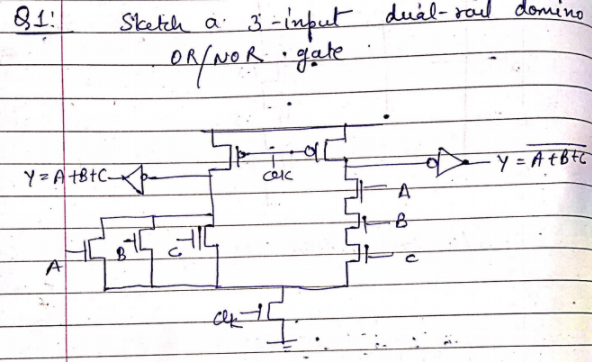 Q1: Sketch a 3-input dual-rail domino
OR/NOR gate.
Y = A+B+C
CLK
Y = \overline{A+B+C}
A
B
C
A
B
C
CLK